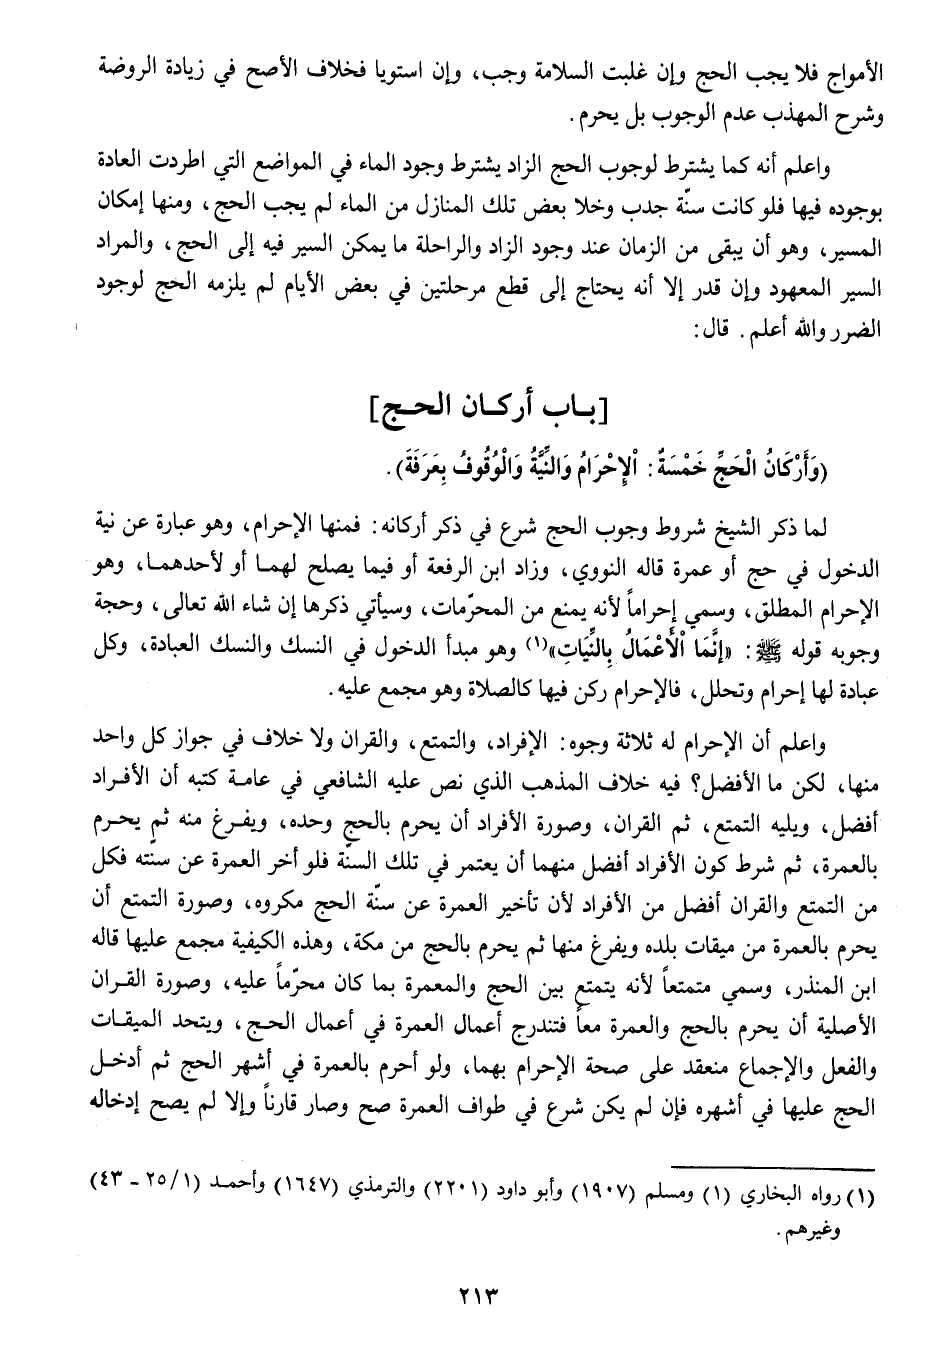 الأمواج فلا يجب الحج وإن غلبت السلامة وجب، وإن استويا فخلاف الأصح في زيادة الروضة
وشرح المهذب عدم الوجوب بل يحرم.
واعلم أنه كما يشترط لوجوب الحج الزاد يشترط وجود الماء في المواضع التي اطردت العادة
بوجوده فيها فلو كانت سنّة جدب وخلا بعض تلك المنازل من الماء لم يجب الحج، ومنها إمكان
المسير، وهو أن يبقى من الزمان عند وجود الزاد والراحلة ما يمكن السير فيه إلى الحج، والمراد
السير المعهود وإن قدر إلا أنه يحتاج إلى قطع مرحلتين في بعض الأيام لم يلزمه الحج لوجود
الضرر والله أعلم. قال:
[بـاب أركـان الحـج]
(وَأَرْكَانُ الْحَجِّ خَمْسَةٌ: اْلإِحْرَامُ وَالنِّيَّةُ وَالْوُقُوفُ بِعَرَفَةَ).
لما ذكر الشيخ شروط وجوب الحج شرع في ذكر أركانه: فمنها الإحرام، وهو عبارة عن نية
الدخول في حج أو عمرة قاله النووي، وزاد ابن الرفعة أو فيما يصلح لهمـا أو لأحدهمـا، وهو
الإحرام المطلق، وسمي إحراماً لأنه يمنع من المحرّمات، وسيأتي ذكرها إن شاء الله تعالى، وحجة
وجوبه قوله ﷺ: «إِنَّمَا اْلأَعْمَالُ بِالنِّيَاتِ»(١) وهو مبدأ الدخول في النسك والنسك العبادة، وكل
عبادة لها إحرام وتحلل، فالإحرام ركن فيها كالصلاة وهو مجمع عليه.
واعلم أن الإحرام له ثلاثة وجوه: الإفراد، والتمتع، والقران ولا خلاف في جواز كل واحد
منها، لكن ما الأفضل؟ فيه خلاف المذهب الذي نص عليه الشافعي في عامـة كتبه أن الأفـراد
أفضل، ويليه التمتع، ثم القران، وصورة الأفراد أن يحرم بالحج وحده، ويفـرغ منه ثم يحـرم
بالعمرة، ثم شرط كون الأفراد أفضل منهما أن يعتمر في تلك السنّة فلو أخر العمرة عن سنته فكل
من التمتع والقران أفضل من الأفراد لأن تأخير العمرة عن سنّة الحج مكروه، وصورة التمتع أن
يحرم بالعمرة من ميقات بلده ويفرغ منها ثم يحرم بالحج من مكة، وهذه الكيفية مجمع عليها قاله
ابن المنذر، وسمي متمتعاً لأنه يتمتع بين الحج والمعمرة بما كان محرّماً عليه، وصورة القـران
الأصلية أن يحرم بالحج والعمرة معاً فتندرج أعمال العمرة في أعمال الحـج، ويتحد الميقـات
والفعل والإجماع منعقد على صحة الإحرام بهما، ولو أحرم بالعمرة في أشهر الحج ثم أدخـل
الحج عليها في أشهره فإن لم يكن شرع في طواف العمرة صح وصار قارناً وإلا لم يصح إدخاله
(١) رواه البخاري (١) ومسلم (١٩٠٧) وأبو داود (٢٢٠١) والترمذي (١٦٤٧) وأحمـد (١/ ٢٥ - ٤٣)
وغيرهم.
٢١٣